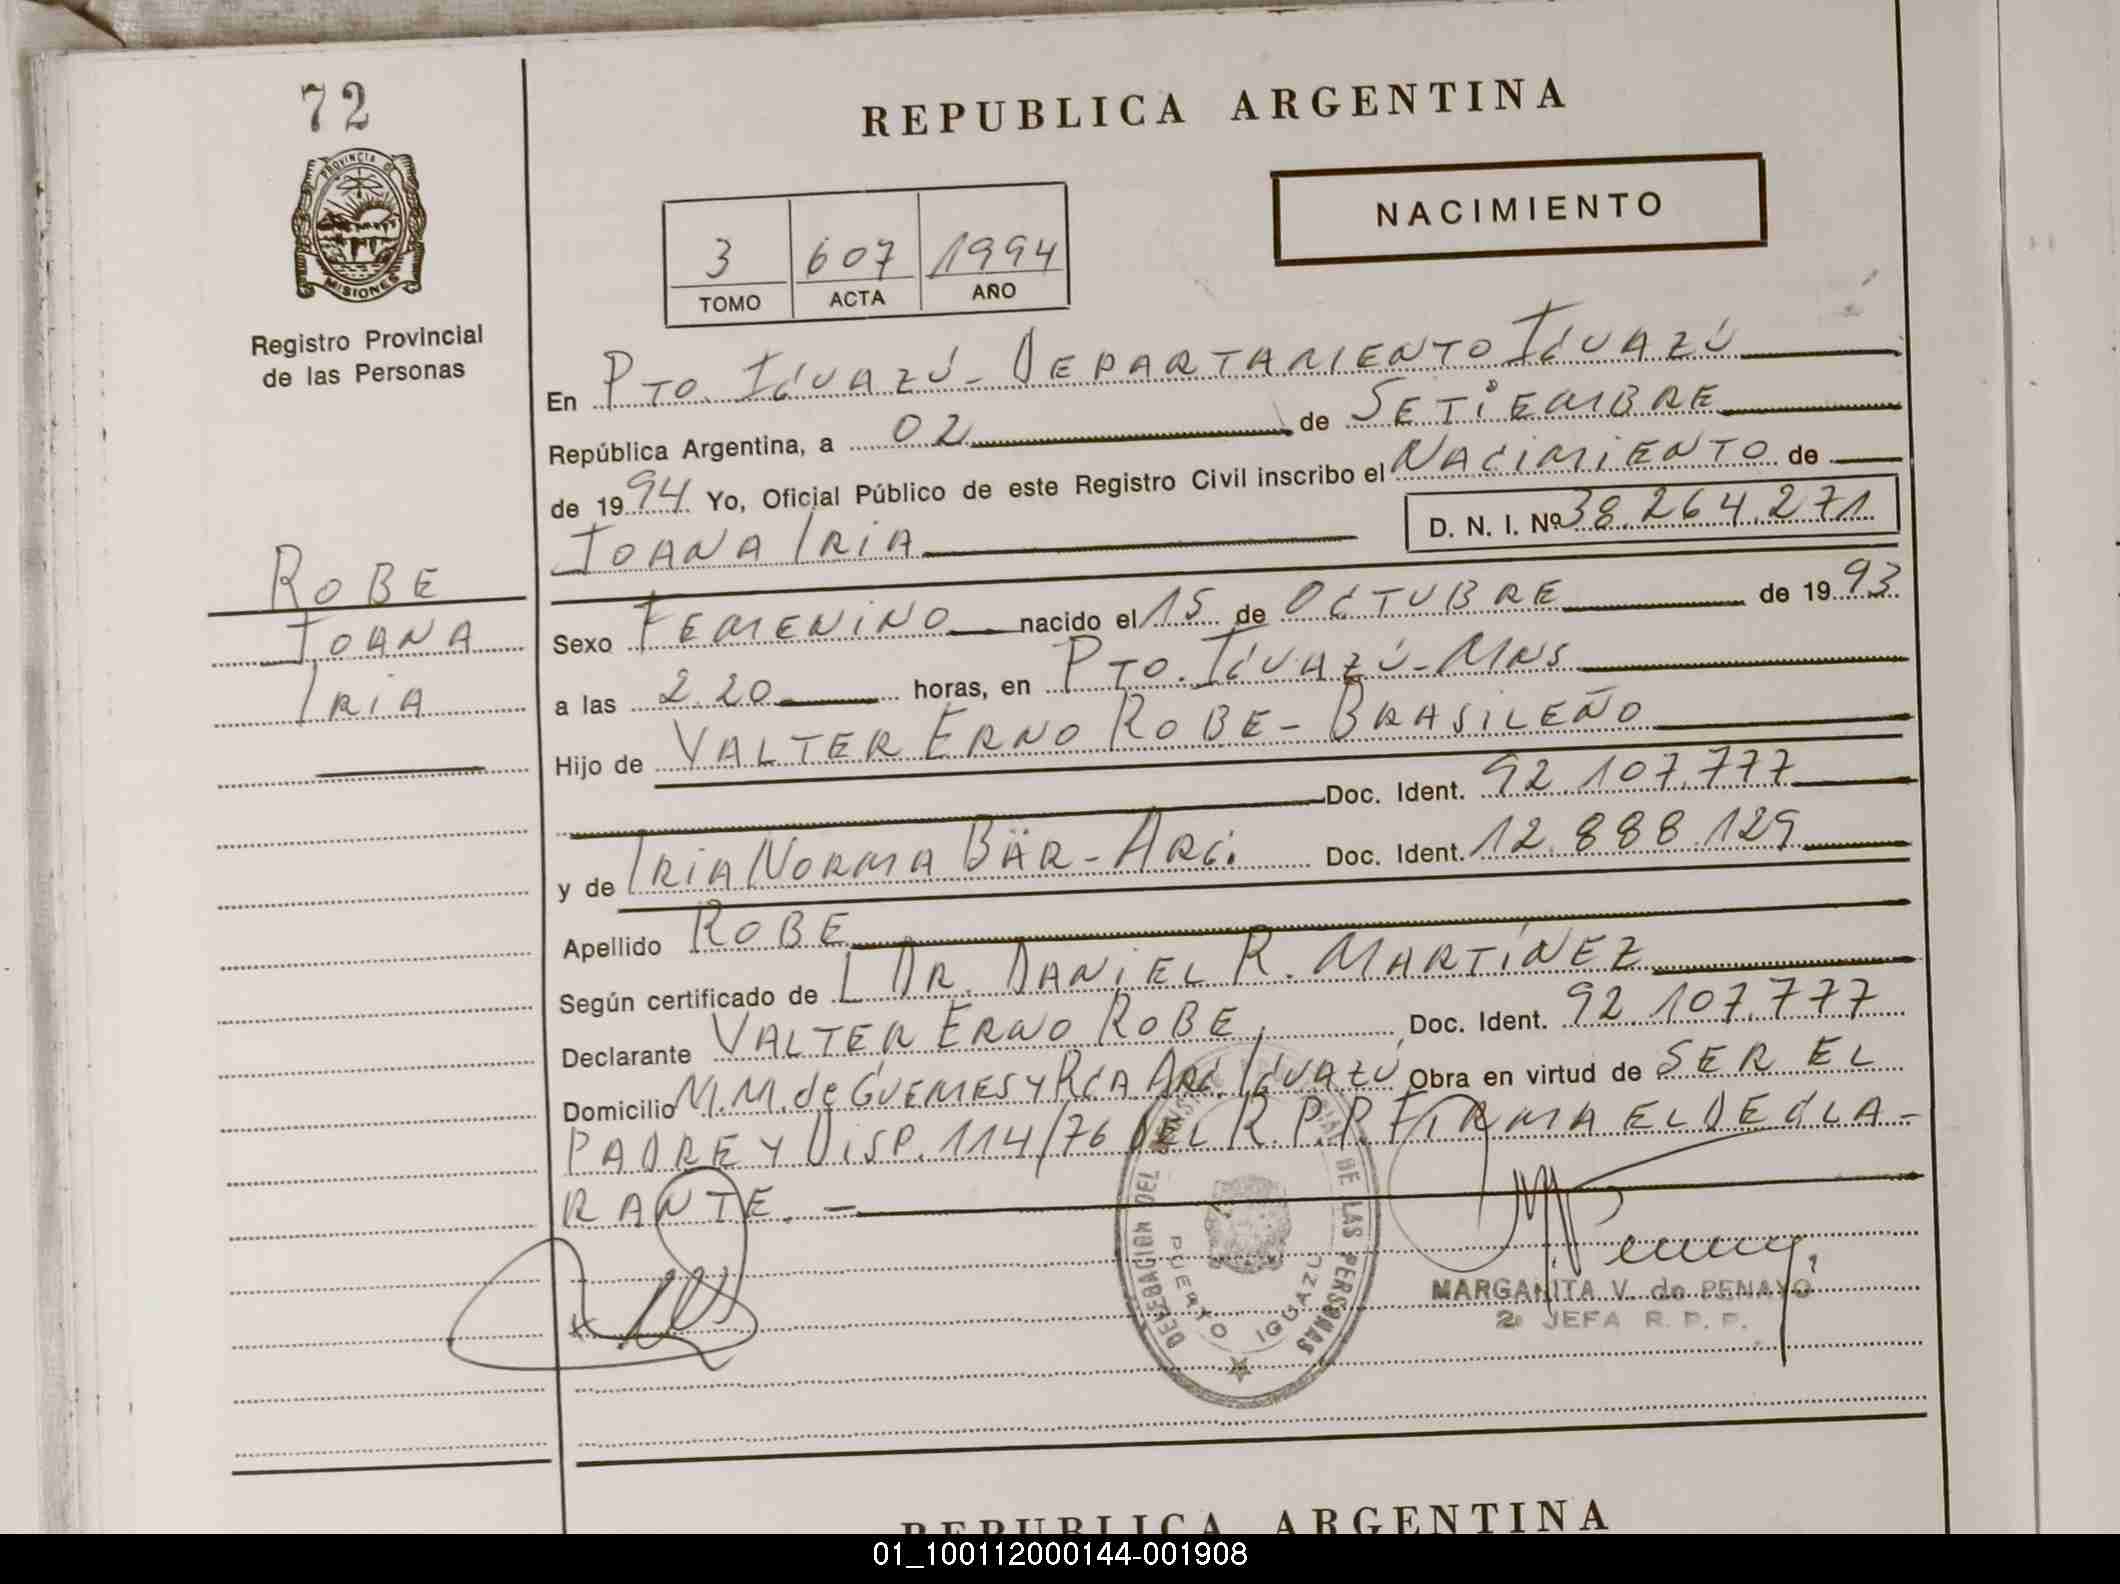 72
REPUBLICA ARGENTINA
PROVINCIA DE
MISIONES
NACIMIENTO
3 607 1994
TOMO ACTA AÑO
Registro Provincial
de las Personas
En PTO. IGUAZÚ - DEPARTAMENTO IGUAZÚ
República Argentina, a 02 de SETIEMBRE
de 1994 Yo, Oficial Público de este Registro Civil inscribo el NACIMIENTO de
IOANA IRIA D. N. I. Nº 38.264.271
ROBE
IOANA
IRIA
Sexo FEMENINO nacido el 15 de OCTUBRE de 1993
a las 2.20 horas, en PTO. IGUAZÚ - MNS
Hijo de VALTER ERNO ROBE - BRASILEÑO
Doc. Ident. 92.107.777
y de IRIA NORMA BÄR - ARG. Doc. Ident. 12.888.129
Apellido ROBE
Según certificado de L DR. DANIEL R. MARTÍNEZ
Declarante VALTER ERNO ROBE, Doc. Ident. 92.107.777
Domicilio M.M. de GÜEMES Y RCA ARG. IGUAZÚ Obra en virtud de SER EL
PADRE Y DISP. 114/76 DEL R.P.P. FIRMA EL DECLA-
RANTE. -
DELEGACION DEL REGISTRO PROVINCIAL DE LAS PERSONAS
PUERTO IGUAZU
MARGARITA V. de PENAYO
2ª JEFA R. P. P.
REPUBLICA ARGENTINA
01_100112000144-001908